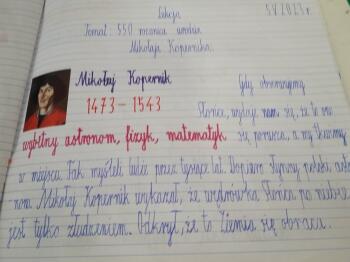 Lekcja 5 V 2023 r.
Temat: 550 rocznica urodzin
Mikołaja Kopernika.
Mikołaj Kopernik
Gdy obserwujemy
1473 – 1543
Słońce, wydaje nam się, że to ono
wybitny astronom, fizyk, matematyk
się porusza, a my tkwimy
w miejscu. Tak myśleli ludzie przez tysiące lat. Dopiero słynny polski astro-
nom Mikołaj Kopernik wykazał, że wędrówka Słońca po niebie
jest tylko złudzeniem. Odkrył, że to Ziemia się obraca.